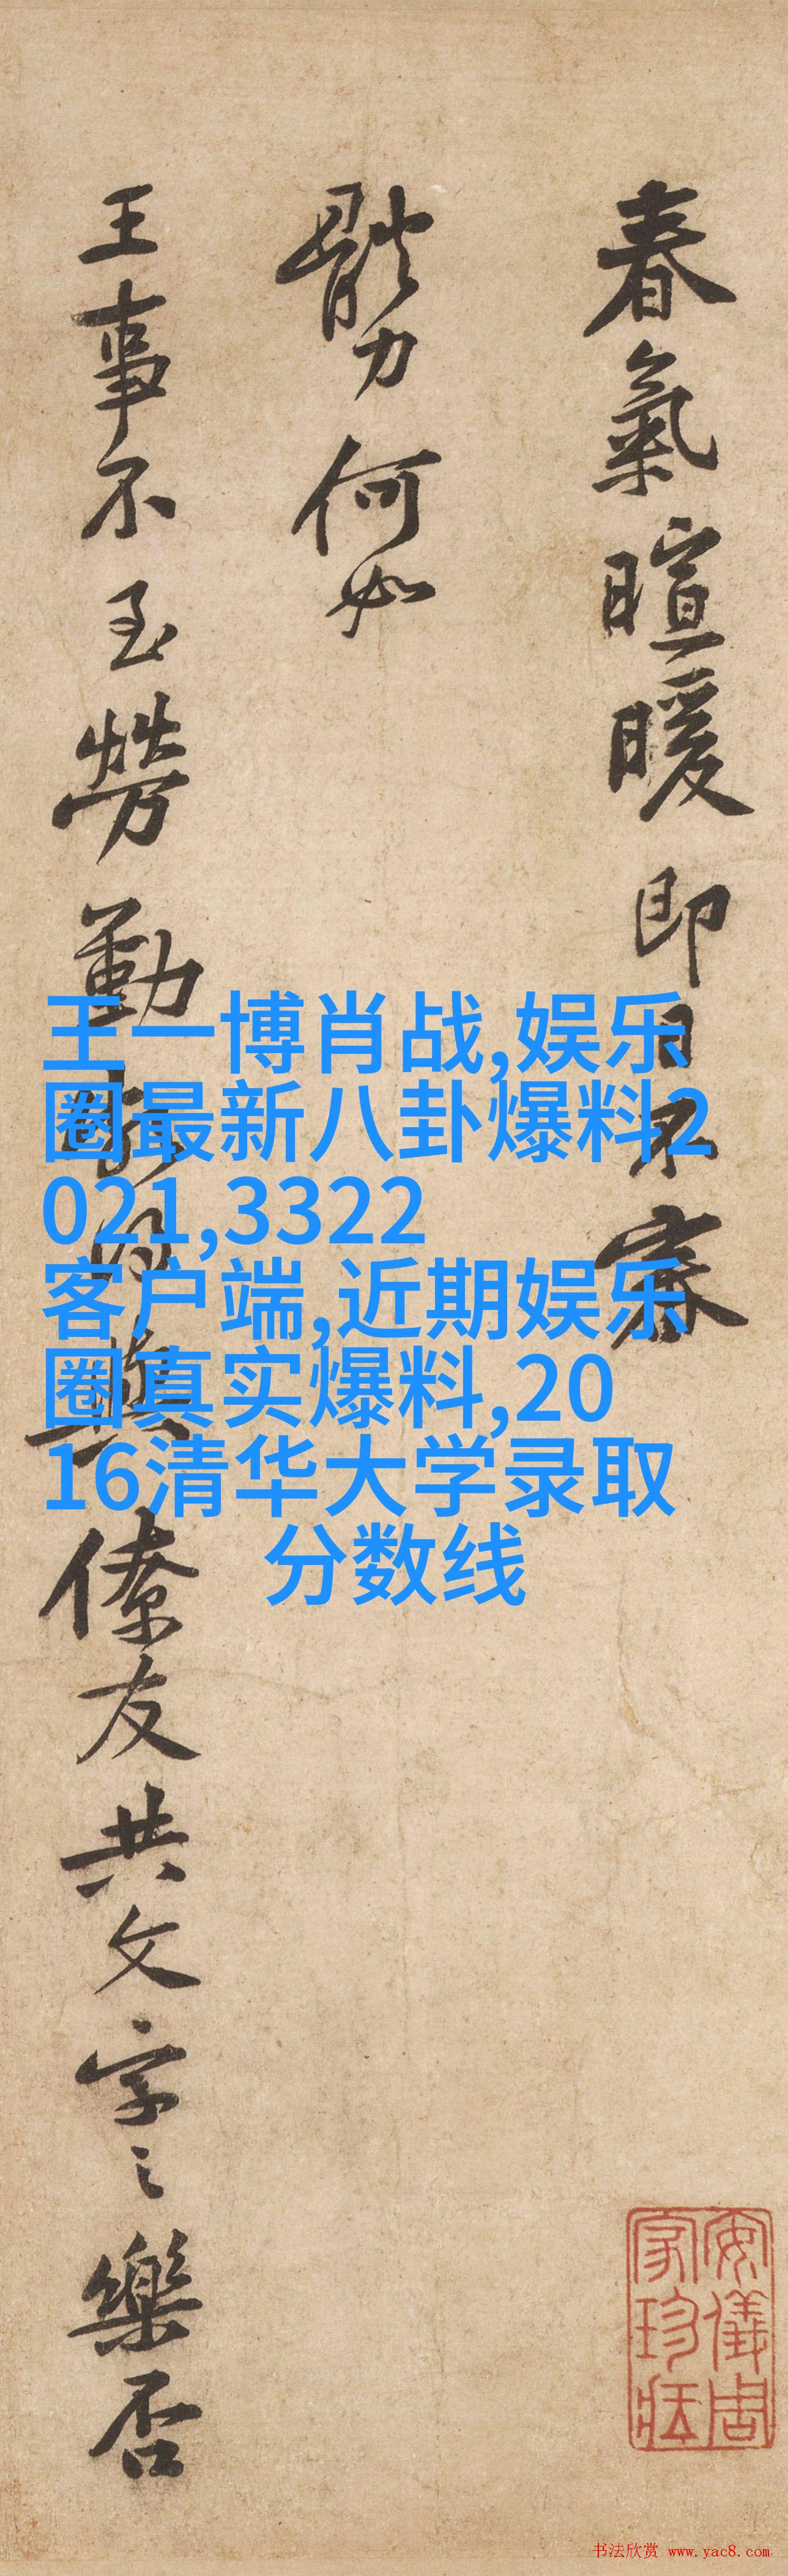 春氣暄暖即日不審
體力何如
王事不至勞勤
與
僚友共文字之樂否
王一博肖战,娱乐
圈最新八卦爆料2
021,3322
客户端,近期娱乐
圈真实爆料,20
16清华大学录取
分数线
安儀周家珍藏
书法欣赏 www.yac8.com